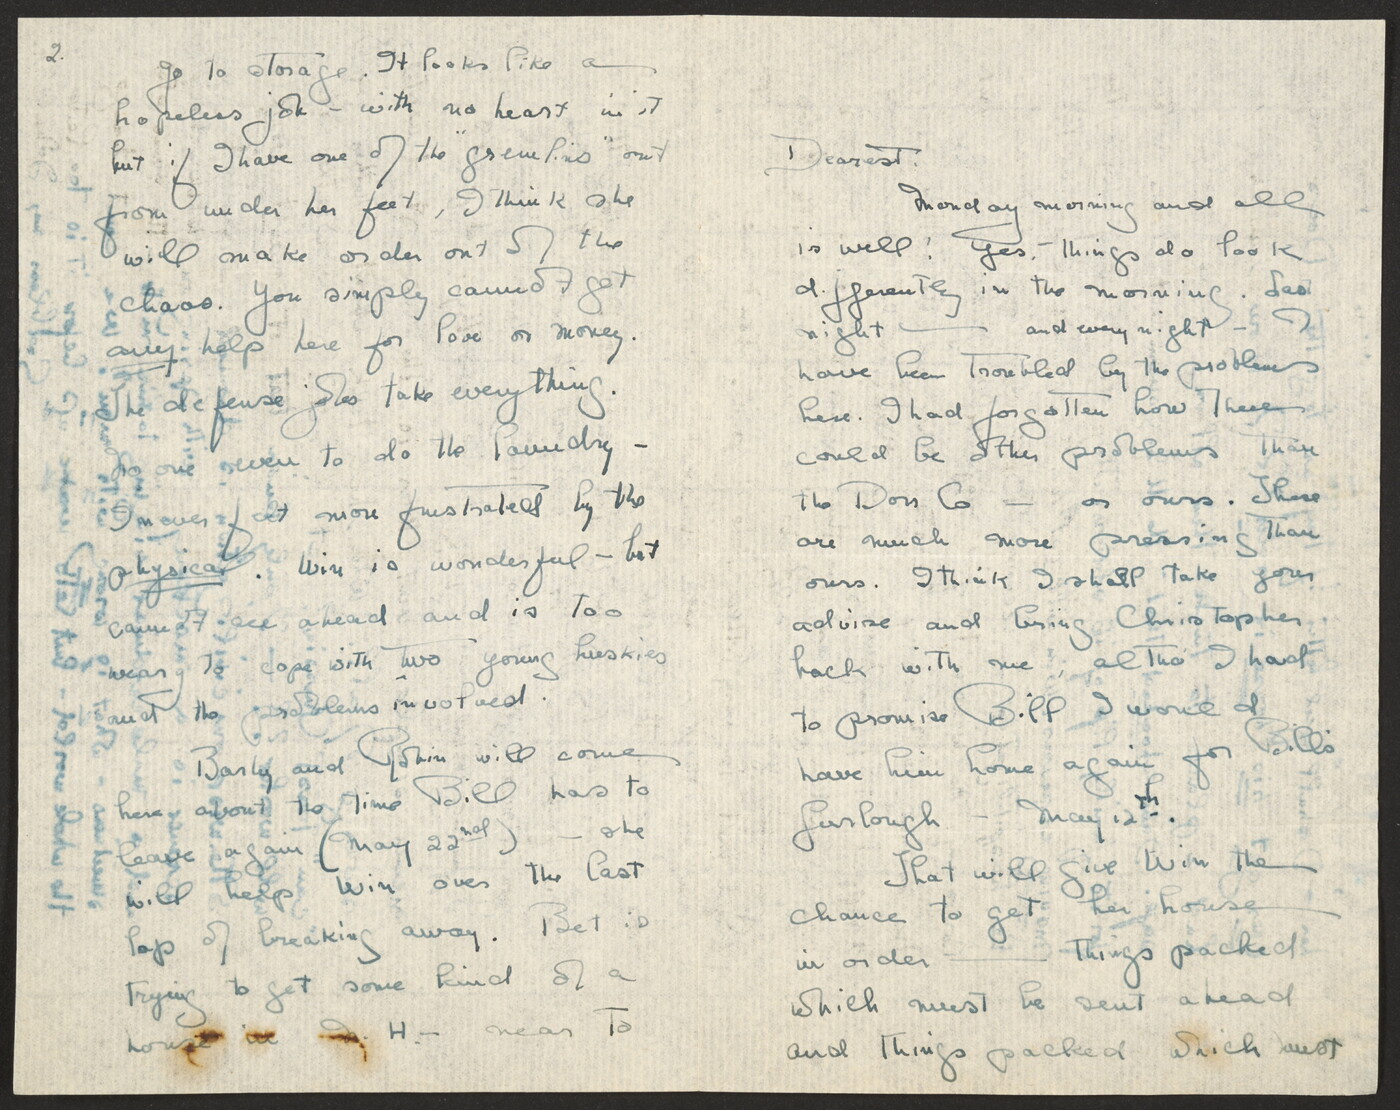 Dearest:
Monday morning and all
is well! Yes, – things do look
differently in the morning. Las
night — and every night – I
have been troubled by the problems
here. I had forgotten how there
could be other problems than
the Dorr Co — or ours. These
are much more pressing than
ours. I think I shall take your
advise and bring Christopher
back with me, altho' I had
to promise Bill I would
have him home again for Bill's
furlough – May 12th.
That will give Win the
chance to get her house
in order — things packed
which must be sent ahead
and things packed which must
2.
go to storage. It looks like a
hopeless job – with no heart in it
but if I have one of the "gremlins" out
from under her feet, I think she
will make order out of the
chaos. You simply cannot get
any help here for love or money.
The defense jobs take everything.
No one even to do the laundry –
I never felt more frustrated by the
physical. Win is wonderful – but
cannot see ahead and is too
weary to cope with two young huskies
and the problems involved.
Barby and Robin will come
here about the time Bill has to
leave again (May 22nd) – she
will help Win over the last
lap of breaking away. Bet is
trying to get some kind of a
house in H – near to